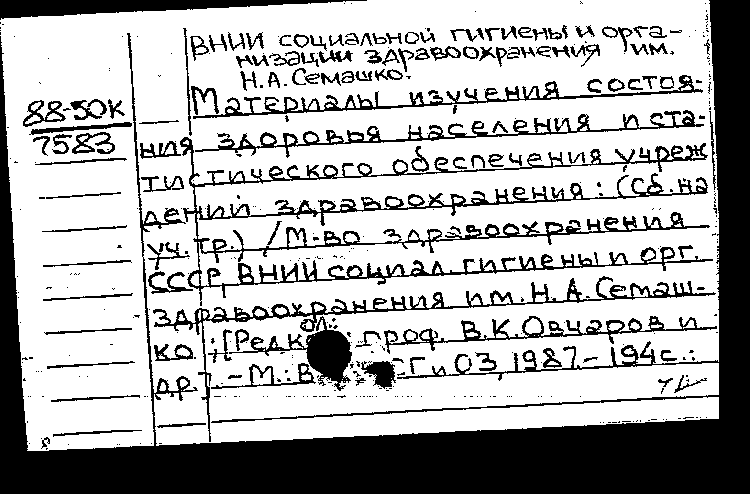 ВНИИ социальной гигиены и орга-
низации здравоохранения им.
Н.А. Семашко.
88-50К
7583
Материалы изучения состоя-
ния здоровья населения и ста-
тистического обеспечения учреж
дений здравоохранения: (Сб. на
уч. тр.) / М-во здравоохранения
СССР, ВНИИ социал. гигиены и орг.
здравоохранения им. Н.А. Семаш-
ко; [Редкол.: проф. В.К. Овчаров и
др.]. – М.: Г и ОЗ, 1987. – 194 с.: